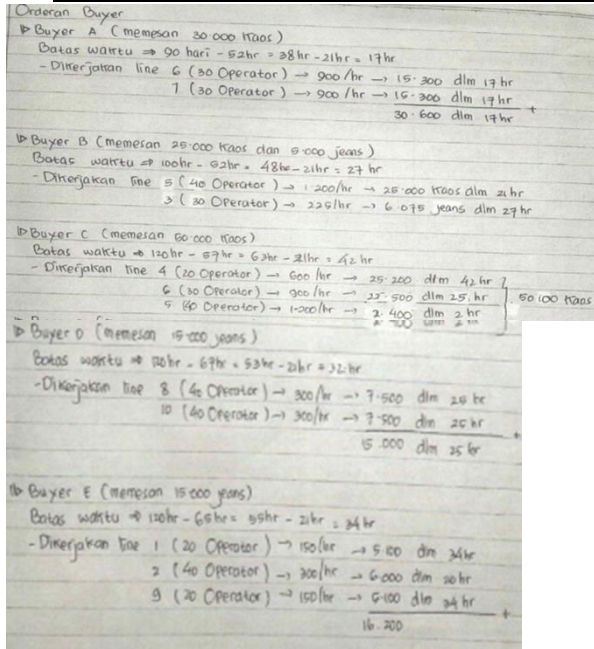 Orderan Buyer
Buyer A (memesan 30.000 kaos)
Batas waktu ⇒ 90 hari - 52hr = 38hr - 21hr = 17hr
- Dikerjakan line 6 (30 Operator) → 900/hr → 15.300 dlm 17hr
7 (30 Operator) → 900/hr → 15.300 dlm 17hr +
30.600 dlm 17hr
Buyer B (memesan 25.000 kaos dan 5.000 jeans)
Batas waktu ⇒ 100hr - 52hr = 48hr - 21hr = 27 hr
- Dikerjakan line 5 (40 Operator) → 1.200/hr → 25.000 kaos dlm 21hr
3 (30 Operator) → 225/hr → 6.075 jeans dlm 27hr
Buyer C (memesan 50.000 kaos)
Batas waktu ⇒ 120hr - 57hr = 63hr - 21hr = 42 hr
- Dikerjakan line 4 (20 Operator) → 600/hr → 25.200 dlm 42hr
6 (30 Operator) → 900/hr → 22.500 dlm 25 hr } 50.100 kaos
5 (40 Operator) → 1.200/hr → 2.400 dlm 2 hr
Buyer D (memesan 15.000 jeans)
Batas waktu ⇒ 120hr - 67hr = 53hr - 21hr = 32 hr
- Dikerjakan line 8 (40 Operator) → 300/hr → 7.500 dlm 25 hr
10 (40 Operator) → 300/hr → 7.500 dlm 25 hr +
15.000 dlm 25 hr
Buyer E (memesan 15.000 jeans)
Batas waktu ⇒ 120hr - 65hr = 55hr - 21hr = 34hr
- Dikerjakan line 1 (20 Operator) → 150/hr → 5.100 dlm 34hr
2 (40 Operator) → 300/hr → 6.000 dlm 20hr
9 (20 Operator) → 150/hr → 5.100 dlm 34hr +
16.200